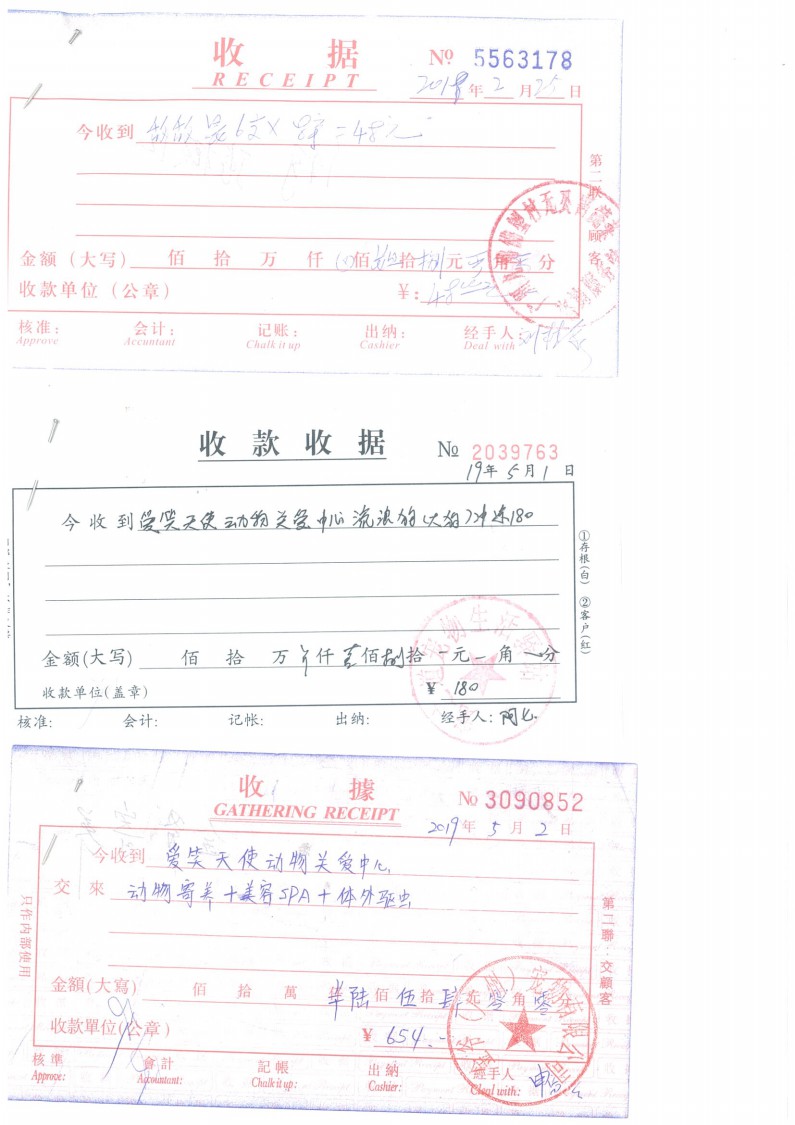 收 据
RECEIPT
№ 5563178
2018年2月25日
今收到 6支× =48元
第二联 顾客
金额（大写） 佰 拾 万 仟 佰 肆拾捌元 角 分
收款单位（公章） ¥：48
核准： 会计： 记账： 出纳： 经手人：
Approve Accuntant Chalk it up Cashier Deal with
收款收据
№ 2039763
19年5月1日
今收到爱笑天使动物关爱中心流浪狗(大狗)冲凉180
①存根(白) ②客户(红)
金额(大写) 佰 拾 万 仟壹佰捌拾 元 角 分
收款单位(盖章) ¥ 180
核准: 会计: 记帐: 出纳: 经手人:
收 據
GATHERING RECEIPT
No 3090852
2019年5月2日
今收到 爱笑天使动物关爱中心
交來 动物寄养+美容SPA+体外驱虫
只作内部使用
第二聯:交顧客
金額(大寫) 佰 拾 萬 陆佰伍拾肆元零角零分
收款單位(公章) ¥ 654.-
核準 會計 記帳 出納 經手人
Approve: Accountant: Chalk it up: Cashier: Cleal with: